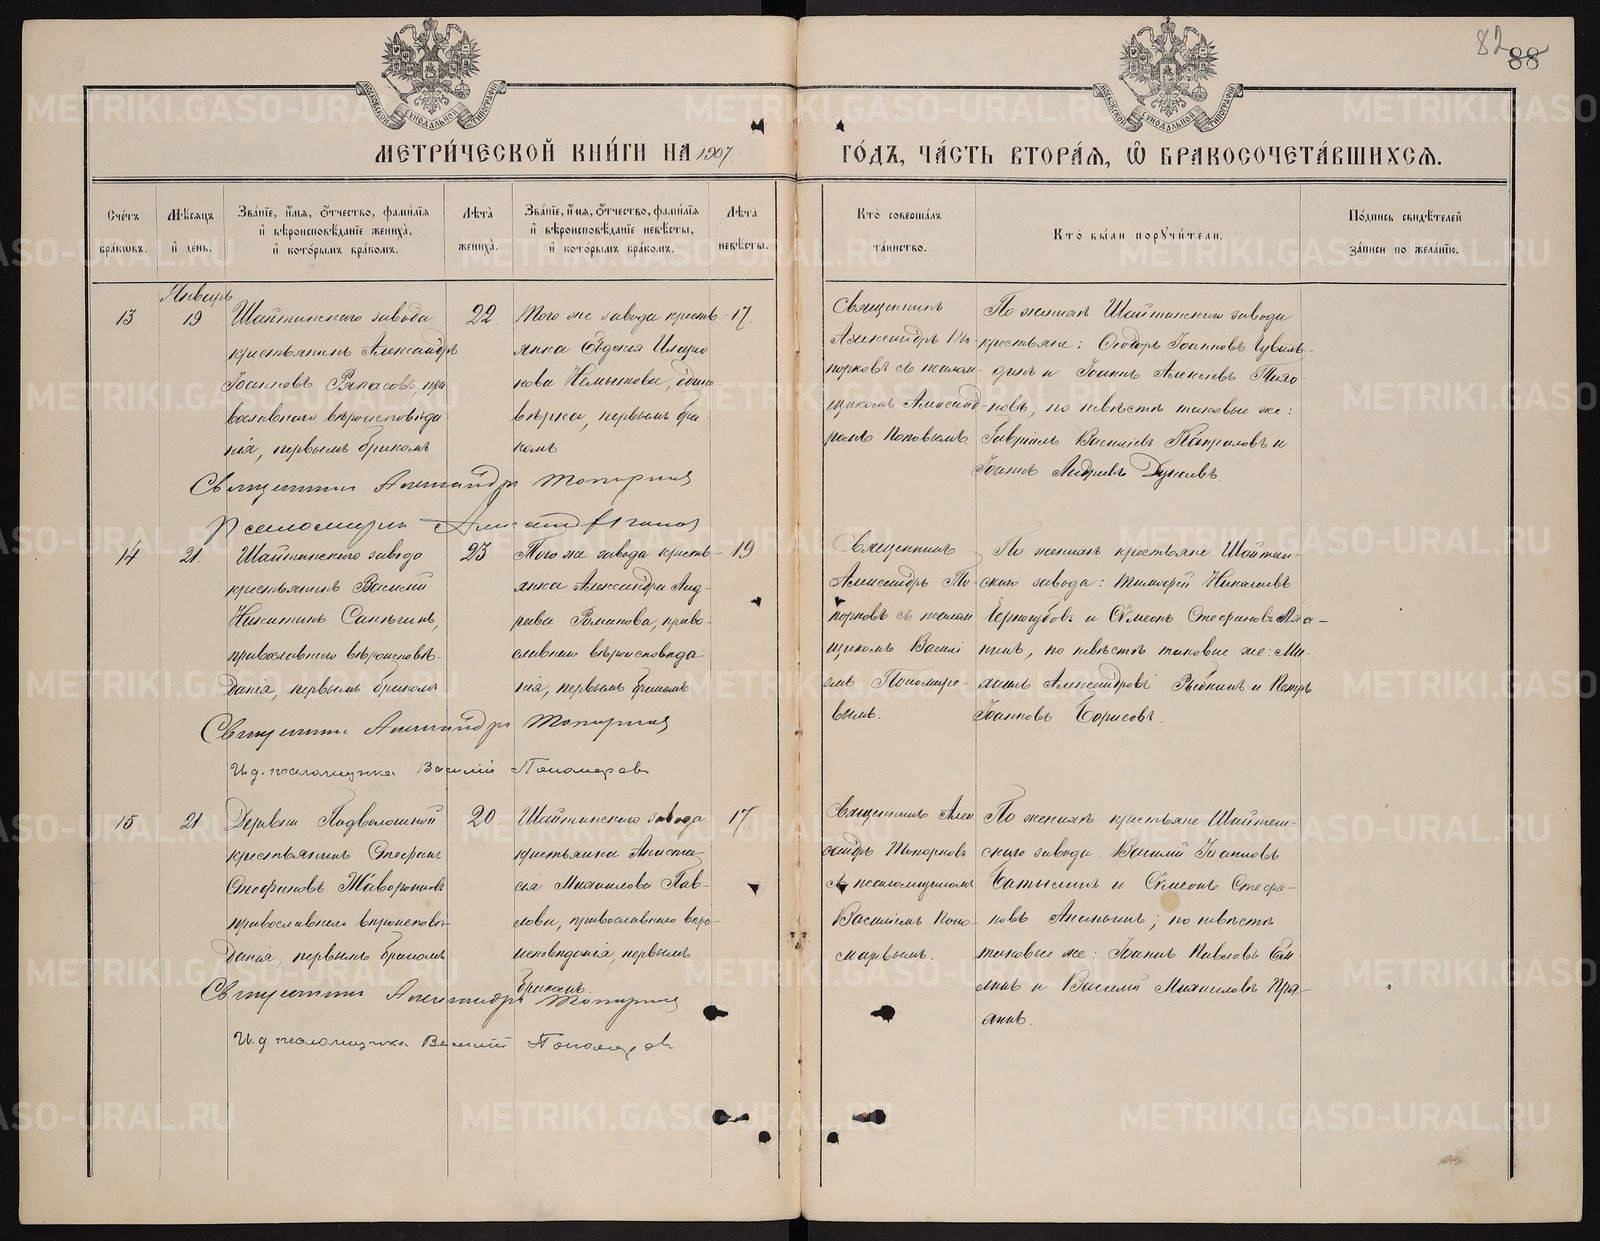 82
88
МЕТРИ́ЧЕСКОЙ КНИ́ГИ НА 1907
ГО́ДЪ, ЧА́СТЬ ВТОРА́Я, Ѽ БРАКОСОЧЕТА́ВШИХСЯ.
Сче́тъ бра́ковъ.
Мѣ́сяцъ и́ де́нь.
Зва́нїе, и́мя, ѻ́тчество, фами́лїя
и́ вѣроисповѣ́данїе жениха̀,
и́ кото́рымъ бра́комъ.
Лѣ́та жениха̀.
Зва́нїе, и́мя, ѻ́тчество, фами́лїя
и́ вѣроисповѣ́данїе невѣ́сты,
и́ кото́рымъ бра́комъ.
Лѣ́та невѣ́сты.
Кто̀ соверша́лъ
та́инство.
Кто̀ бы́ли порꙋчи́тели.
По́дпись свидѣ́телей
за́писи по жела́нїю.
Январь
13
19
Шайтанскаго завода
крестьянинъ Александръ
Іоанновъ, пра
вославнаго вѣроисповѣда
нія, первымъ бракомъ
22
Того же завода кресть
янка Евдокія Иларіо
нова, едино
вѣрка, первымъ бра
комъ
17.
Священникъ
Александръ То
порковъ съ псалом
щикомъ Александ
ромъ Поповымъ
По женихѣ Шайтанскаго завода
крестьяне: Ѳеодоръ Іоанновъ
и Іоаннъ Алексѣевъ
, по невѣстѣ таковые же:
Гавріилъ Василіевъ и
Іоаннъ Андреевъ
Священникъ Александръ Топорковъ
Псаломщикъ
14
21.
Шайтанскаго завода
крестьянинъ Василій
Никитинъ,
православнаго вѣроисповѣ-
данія, первымъ бракомъ
23
Того же завода кресть-
янка Александра Анд-
реева Романова, право-
славнаго вѣроисповѣда
нія, первымъ бракомъ
19
Священникъ
Александръ То
порковъ съ псалом
щикомъ Васили
емъ Пономаре-
вымъ.
По женихѣ крестьяне Шайтан-
скаго завода: Тимоѳей Николаевъ
Черногубовъ и Сѵмеонъ Стефановъ Ана-
нинъ, по невѣстѣ таковые же: Ми-
хаилъ Александровъ Рыбкинъ и Петръ
Іоанновъ Борисовъ.
Священникъ Александръ Топорковъ
И. д. псаломщика Василій Пономаревъ
15
21
Деревни Подволошной
крестьянинъ Стефанъ
Стефановъ Жаворонковъ
православнаго вѣроисповѣ-
данія, первымъ бракомъ
20.
Шайтанскаго завода
крестьянка Анаста
сія Михаилова Пав-
лова, православнаго вѣро-
исповѣданія, первымъ
бракомъ.
17.
Священникъ Алек
сандръ Топорковъ
съ псаломщикомъ
Василіемъ Поно
маревымъ.
По женихѣ крестьяне Шайтан-
скаго завода. Василій Іоанновъ
и Сѵмеонъ Стефа-
новъ Ананьинъ; по невѣстѣ
таковые же: Іоаннъ Павловъ
и Василій Михаиловъ
Священникъ Александръ Топорковъ
И. д. псаломщика Василій Пономаревъ
METRIKI.GASO-URAL.RU